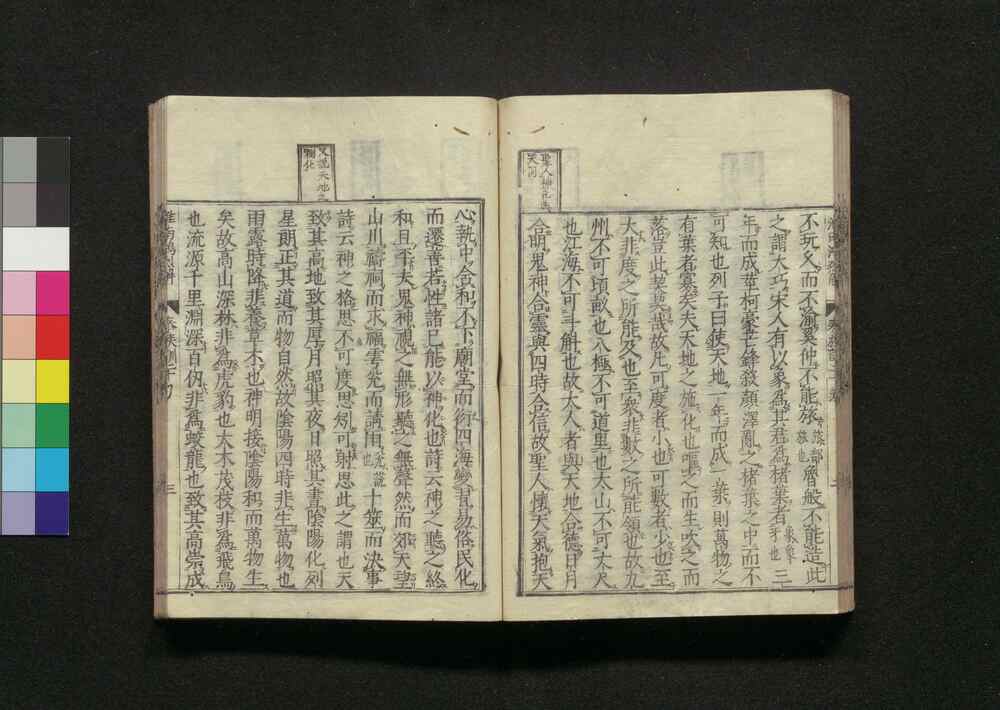 聖人懷天氣
不玩久而不渝奚仲不能旅旅部旅也魯般不能造此
之謂大巧宋人有以象為其君為楮葉者象象牙也三
年而成莖柯豪芒鋒殺顏澤亂之楮葉之中而不
可知也列子曰使天地一年而成一葉則萬物之
有葉者寡矣夫天地之施化也嘔之而生吹之而
落豈此契契哉故凡可度者小也可數者少也至
大非度之所能及也至衆非數之所能領也故九
州不可頃畝也八極不可道里也太山不可丈尺
也江海不可斗斛也故大人者與天地合德日月
合明鬼神合靈與四時合信故聖人懷天氣抱天
心執中含和不下廟堂而衍四海變習易俗民化
而遷善若性諸己能以神化也詩云神之聽之終
和且平夫鬼神視之無形聽之無聲然而郊天望
山川禱祠而求福雩兌而請雨兌說也卜筮而決事
詩云神之格思不可度思矧可射思此之謂也天
致其高地致其厚月照其夜日照其晝陰陽化列
星朗正其道而物自然故陰陽四時非生萬物也
雨露時降非養草木也神明接陰陽和而萬物生
矣故高山深林非為虎豹也大木茂枝非為飛鳥
也流源千里淵深百仞非為蛟龍也致其高崇成